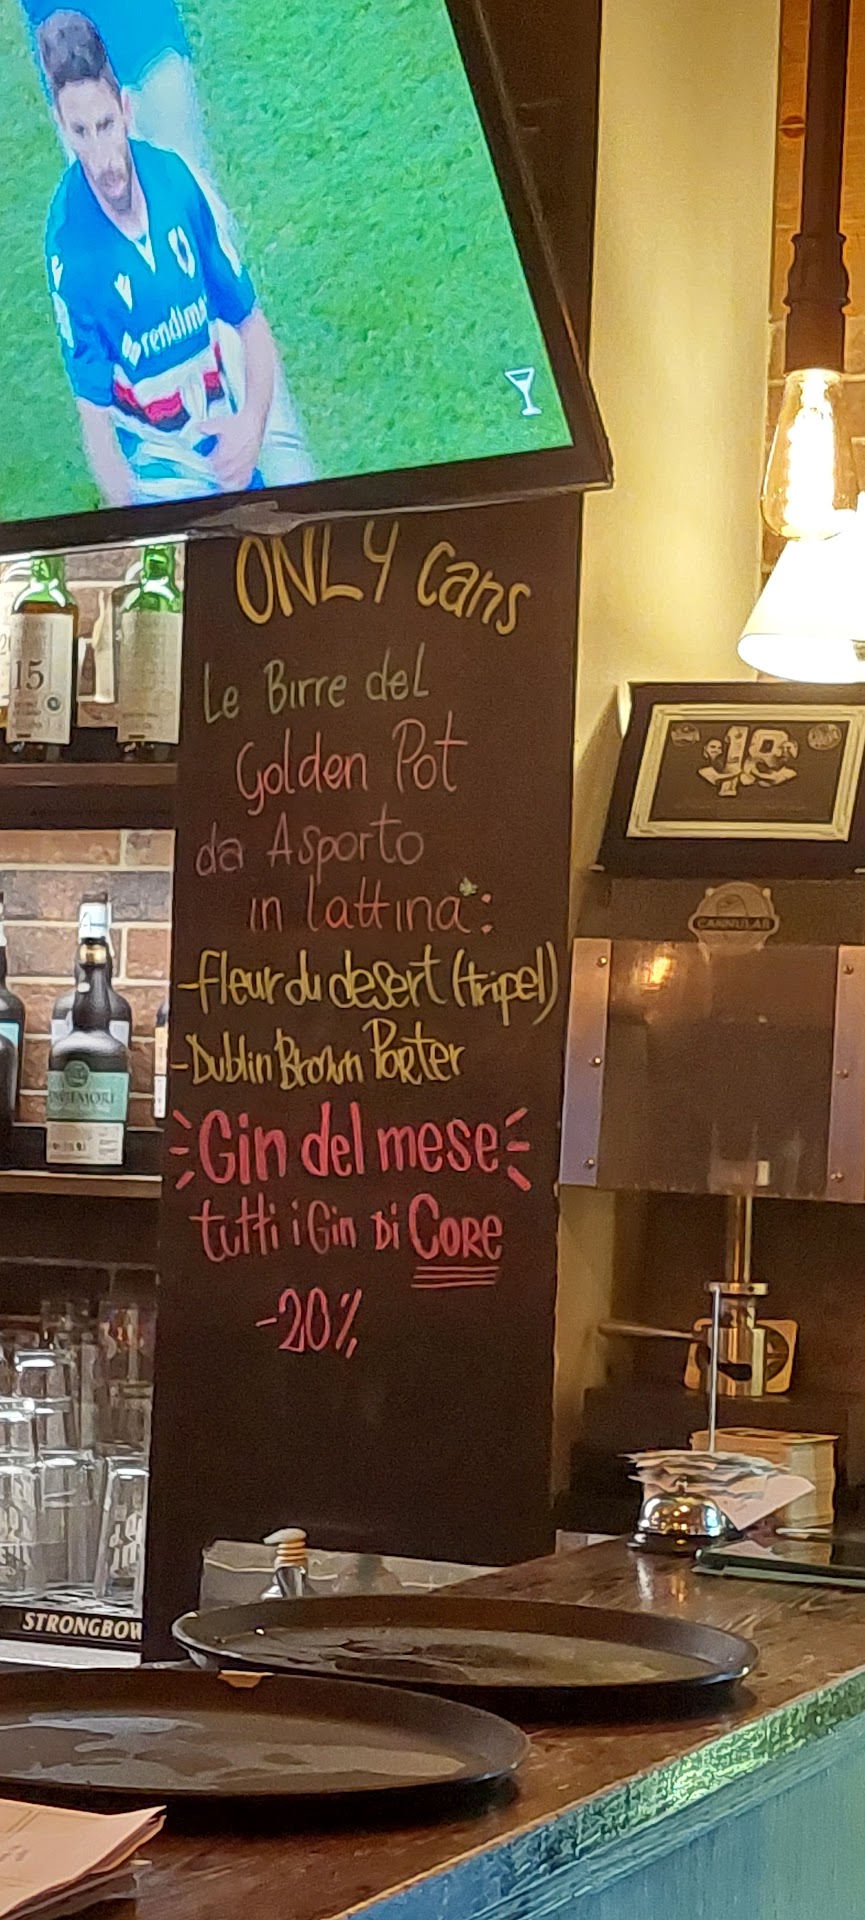 rendimax
ONLY cans
Le Birre del
Golden Pot
da Asporto
in lattina:
-fleur du desert (tripel)
-Dublin Brown Porter
Gin del mese
tutti i Gin Di CORE
-20%
15
CANNULAR
STRONGBOW